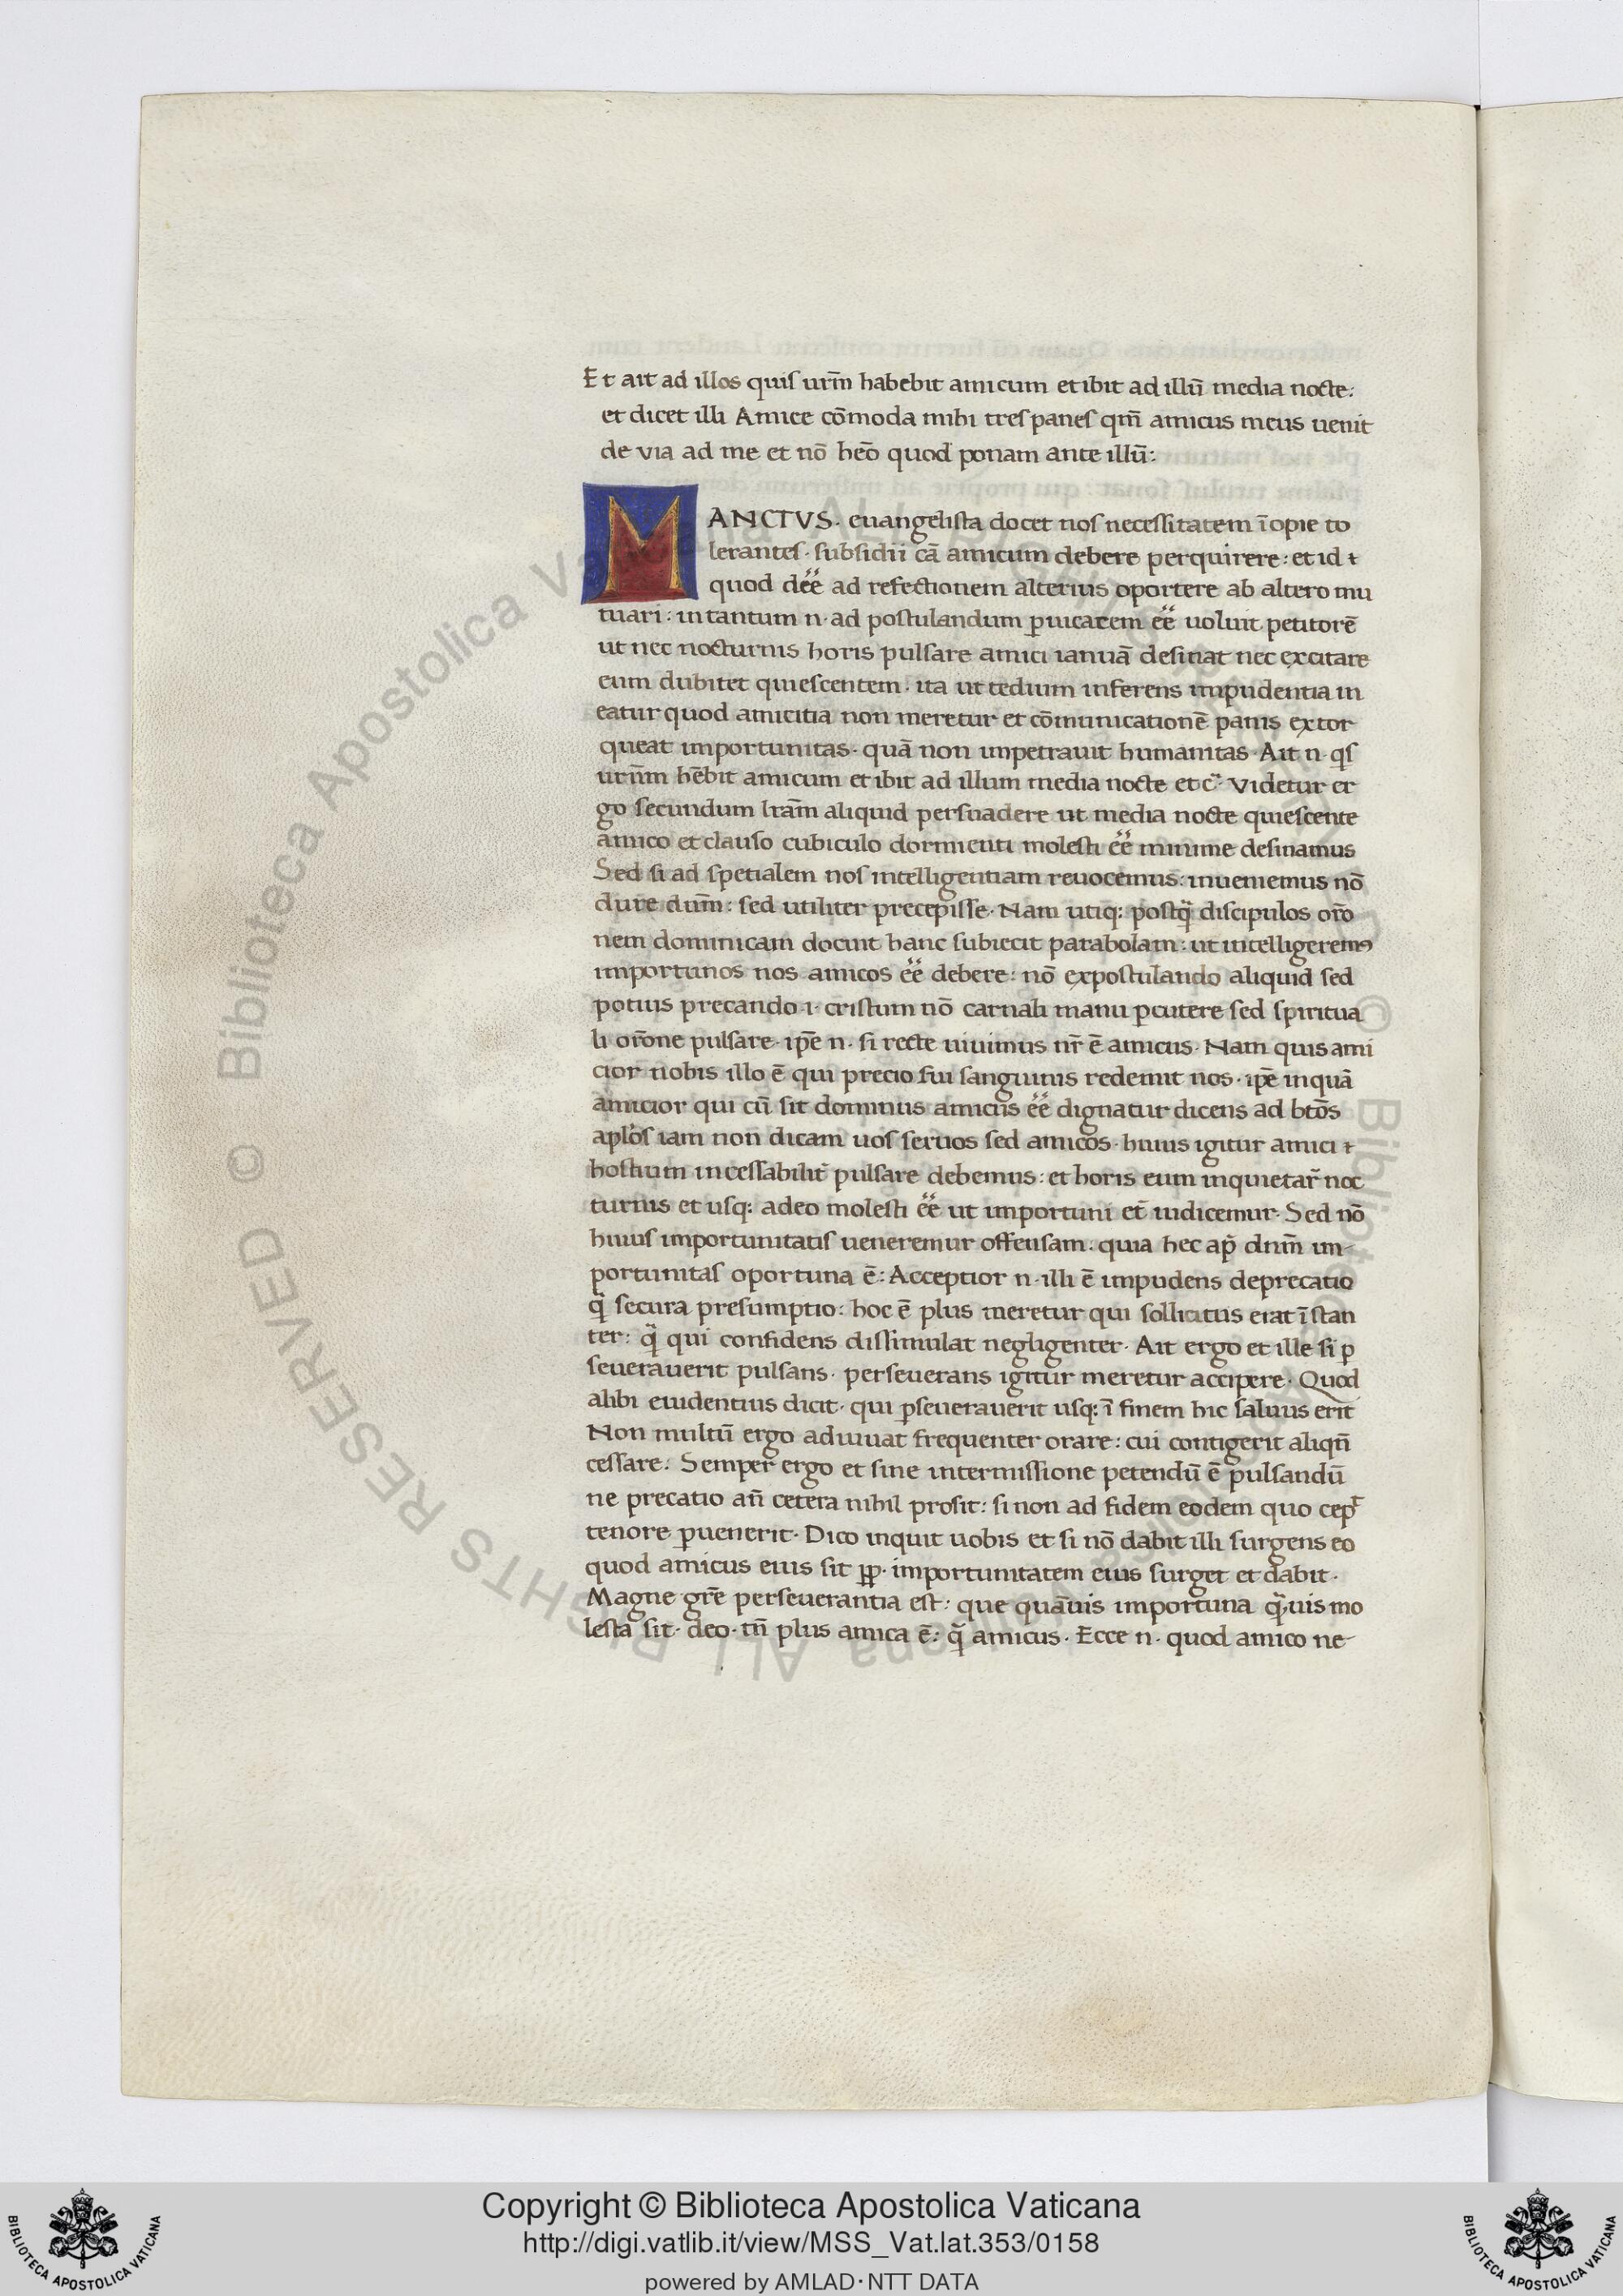 Et ait ad illos quis urm̄ habebit amicum et ibit ad illū media nocte:
et dicet illi Amice cōmoda mihi tres panes qm̄ amicus meus uenit
de via ad me et nō heō quod ponam ante illū:
MANCTVS. euangelista docet nos necessitatem īopie to
lerantes · subsidii cā amicum debere perquirere: et id
quod deēē ad refectionem alterius oportere ab altero mu
tuari: in tantum n· ad postulandum ꝑuicacem ēē uoluit petitorē
ut nec nocturnis horis pulsare amici ianuā desinat nec excitare
eum dubitet quiescentem · ita ut tedium inferens impudentia m
eatur quod amicitia non meretur et cōmunicationē panis extor
queat importunitas · quā non impetrauit humanitas · Ait n· qs
urūm hēbit amicum et ibit ad illum media nocte etc̄· Videtur er
go secundum lrām aliquid persuadere ut media nocte quiescente
amico et clauso cubiculo dormienti molesti ēē minime desinamus
Sed si ad spetialem nos intelligentiam reuocemus: inueniemus nō
dure dum̄: sed utiliter precepisse · Nam utiq: postq̄ discipulos orō
nem dominicam docuit hanc subiecit parabolam: ut intelligeremꝰ
importunos nos amicos ēē debere: nō expostulando aliquid sed
potius precando ·i· cristum nō carnali manu ꝑcutere sed spiritua
li orōne pulsare · ipē n· si recte uiuimus nr̄ ē amicus · Nam quis ami
cior nobis illo ē qui precio sui sanguinis redemit nos · ipē inquā
amicior qui cū sit dominus amicus ēē dignatur dicens ad btōs
aplōs iam non dicam uos seruos sed amicos · huius igitur amici
hostium incessabilit̄ pulsare debemus: et horis eum inquietar̄ noc
turnis et usq: adeo molesti ēē ut importuni et̄ iudicemur · Sed nō
huius importunitatis ueneremur offensam: quia hec ap̄ dnm̄ im-
portunitas oportuna ē: Acceptior n· illi ē impudens deprecatio
q̄ secura presumptio: hoc ē plus meretur qui sollicitus erat īstan
ter: q̄ qui confidens dissimulat negligenter · Ait ergo et ille si ꝑ
seuerauerit pulsans · perseuerans igitur meretur accipere · Quod
alibi euidentius dicit · qui ꝑseuerauerit usq: ī finem hic saluus erit
Non multū ergo adiuuat frequenter orare: cui contigerit aliqn̄
cessare: Semper ergo et sine intermissione petendū ē pulsandū
ne precatio an̄ cetera nihil prosit: si non ad fidem eodem quo cep̄
tenore ꝑuenerit · Dico inquit uobis et si nō dabit illi surgens eo
quod amicus eius sit ꝓp · importunitatem eius surget et dabit ·
Magne grē perseuerantia est: que quāuis importuna q̄uis mo
lesta sit · deo · tn̄ plus amica ē: q̄ amicus · Ecce n· quod amico ne-
© Biblioteca Apostolica Vaticana ALL RIGHTS RESERVED
Copyright © Biblioteca Apostolica Vaticana
http://digi.vatlib.it/view/MSS_Vat.lat.353/0158
powered by AMLAD·NTT DATA
BIBLIOTECA APOSTOLICA VATICANA
BIBLIOTECA APOSTOLICA VATICANA